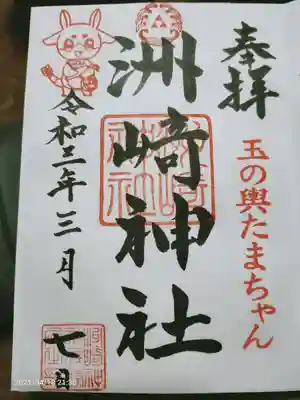 奉拝
玉の輿たまちゃん
洲崎神社
令和三年三月
七日
2021/04/18 21:30